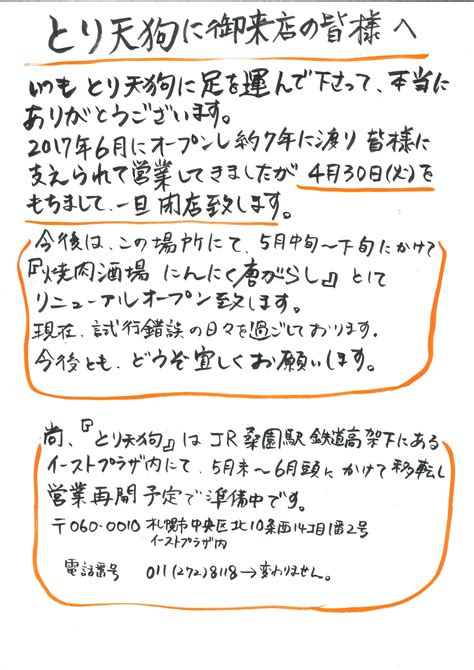 とり天狗に御来店の皆様へ
いつもとり天狗に足を運んで下さって、本当に
ありがとうございます。
2017年6月にオープンし約7年に渡り皆様に
支えられて営業してきましたが4月30日(火)を
もちまして、一旦閉店致します。
今後は、この場所にて、5月中旬〜下旬にかけて
『焼肉酒場 にんにく唐がらし』として
リニューアルオープン致します。
現在、試行錯誤の日々を過ごしております。
今後とも、どうぞ宜しくお願いします。
尚、『とり天狗』はJR桑園駅 鉄道高架下にある
イーストプラザ内にて、5月末〜6月頭にかけて移転し
営業再開予定で準備中です。
〒060-0010 札幌市中央区北10条西14丁目1番2号
イーストプラザ内
電話番号 011(272)8118→変わりません。